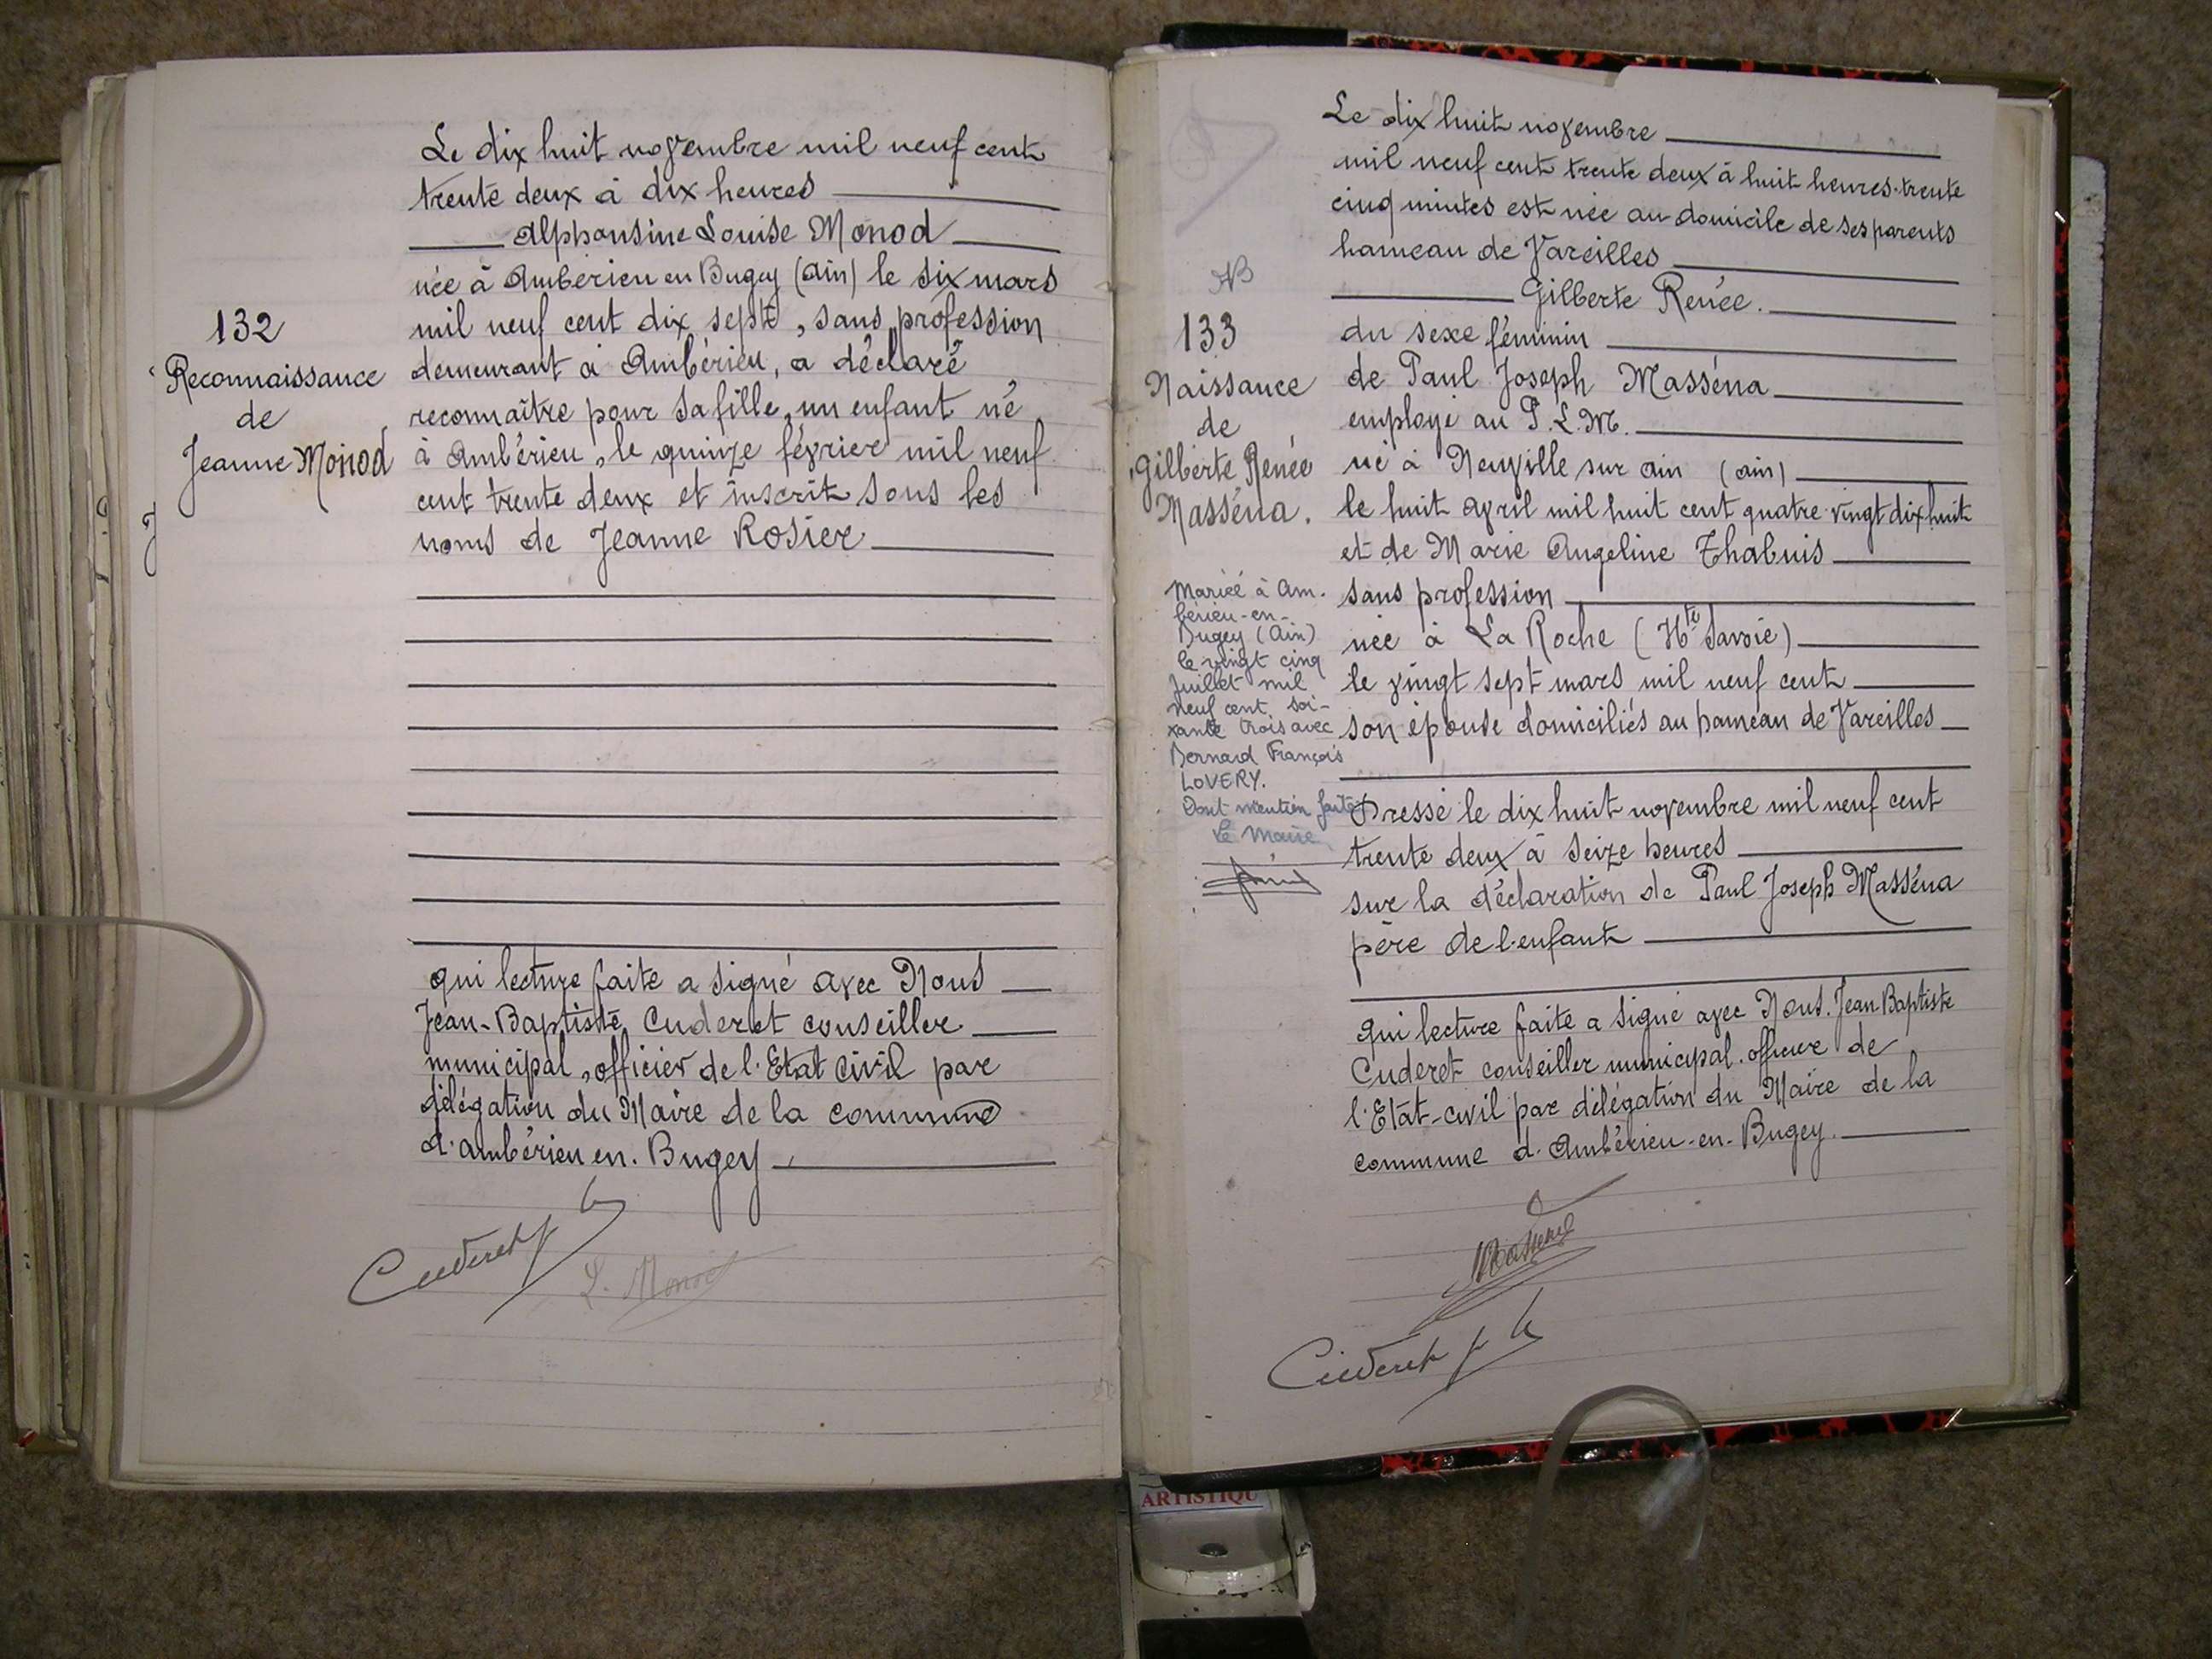 132
Reconnaissance
de
Jeanne Monod
Le dix huit novembre mil neuf cent
trente deux à dix heures
Alphonsine Louise Monod
née à Ambérieu en Bugey (Ain) le six mars
mil neuf cent dix sept, sans profession
demeurant à Ambérieu, a déclaré
reconnaître pour sa fille, un enfant né
à Ambérieu, le quinze février mil neuf
cent trente deux et inscrit sous les
noms de Jeanne Rosier
qui lecture faite a signé avec Nous
Jean-Baptiste Cuderet conseiller
municipal, officier de l'Etat Civil par
délégation du Maire de la commune
d'Ambérieu en. Bugey
Cuderet
L. Monod
133
Naissance
de
Gilberte Renée
Masséna.
Mariée à Am-
bérieu-en-
Bugey (Ain)
le vingt cinq
Juillet mil
neuf cent soi-
xante trois avec
Bernard François
LOVERY.
Dont mention faite
Le Maire
Le dix huit novembre
mil neuf cent trente deux à huit heures trente
cinq mintes est née au domicile de ses parents
hameau de Vareilles
Gilberte Renée.
du sexe féminin
de Paul Joseph Masséna
employé au P.L.M.
né à Neuville sur ain (ain)
le huit avril mil huit cent quatre-vingt dix huit
et de Marie Angeline Thabuis
sans profession
née à La Roche (Hte Savoie)
le vingt sept mars mil neuf cent
son épouse domiciliés au hameau de Vareilles
Dressé le dix huit novembre mil neuf cent
trente deux à seize heures
sur la déclaration de Paul Joseph Masséna
père de l'enfant
qui lecture faite a signé avec Nous. Jean Baptiste
Cuderet conseiller municipal. officier de
l'Etat-civil par délégation du Maire de la
commune d'Ambérieu-en-Bugey.
Massena
Cuderet
ARTISTIQU